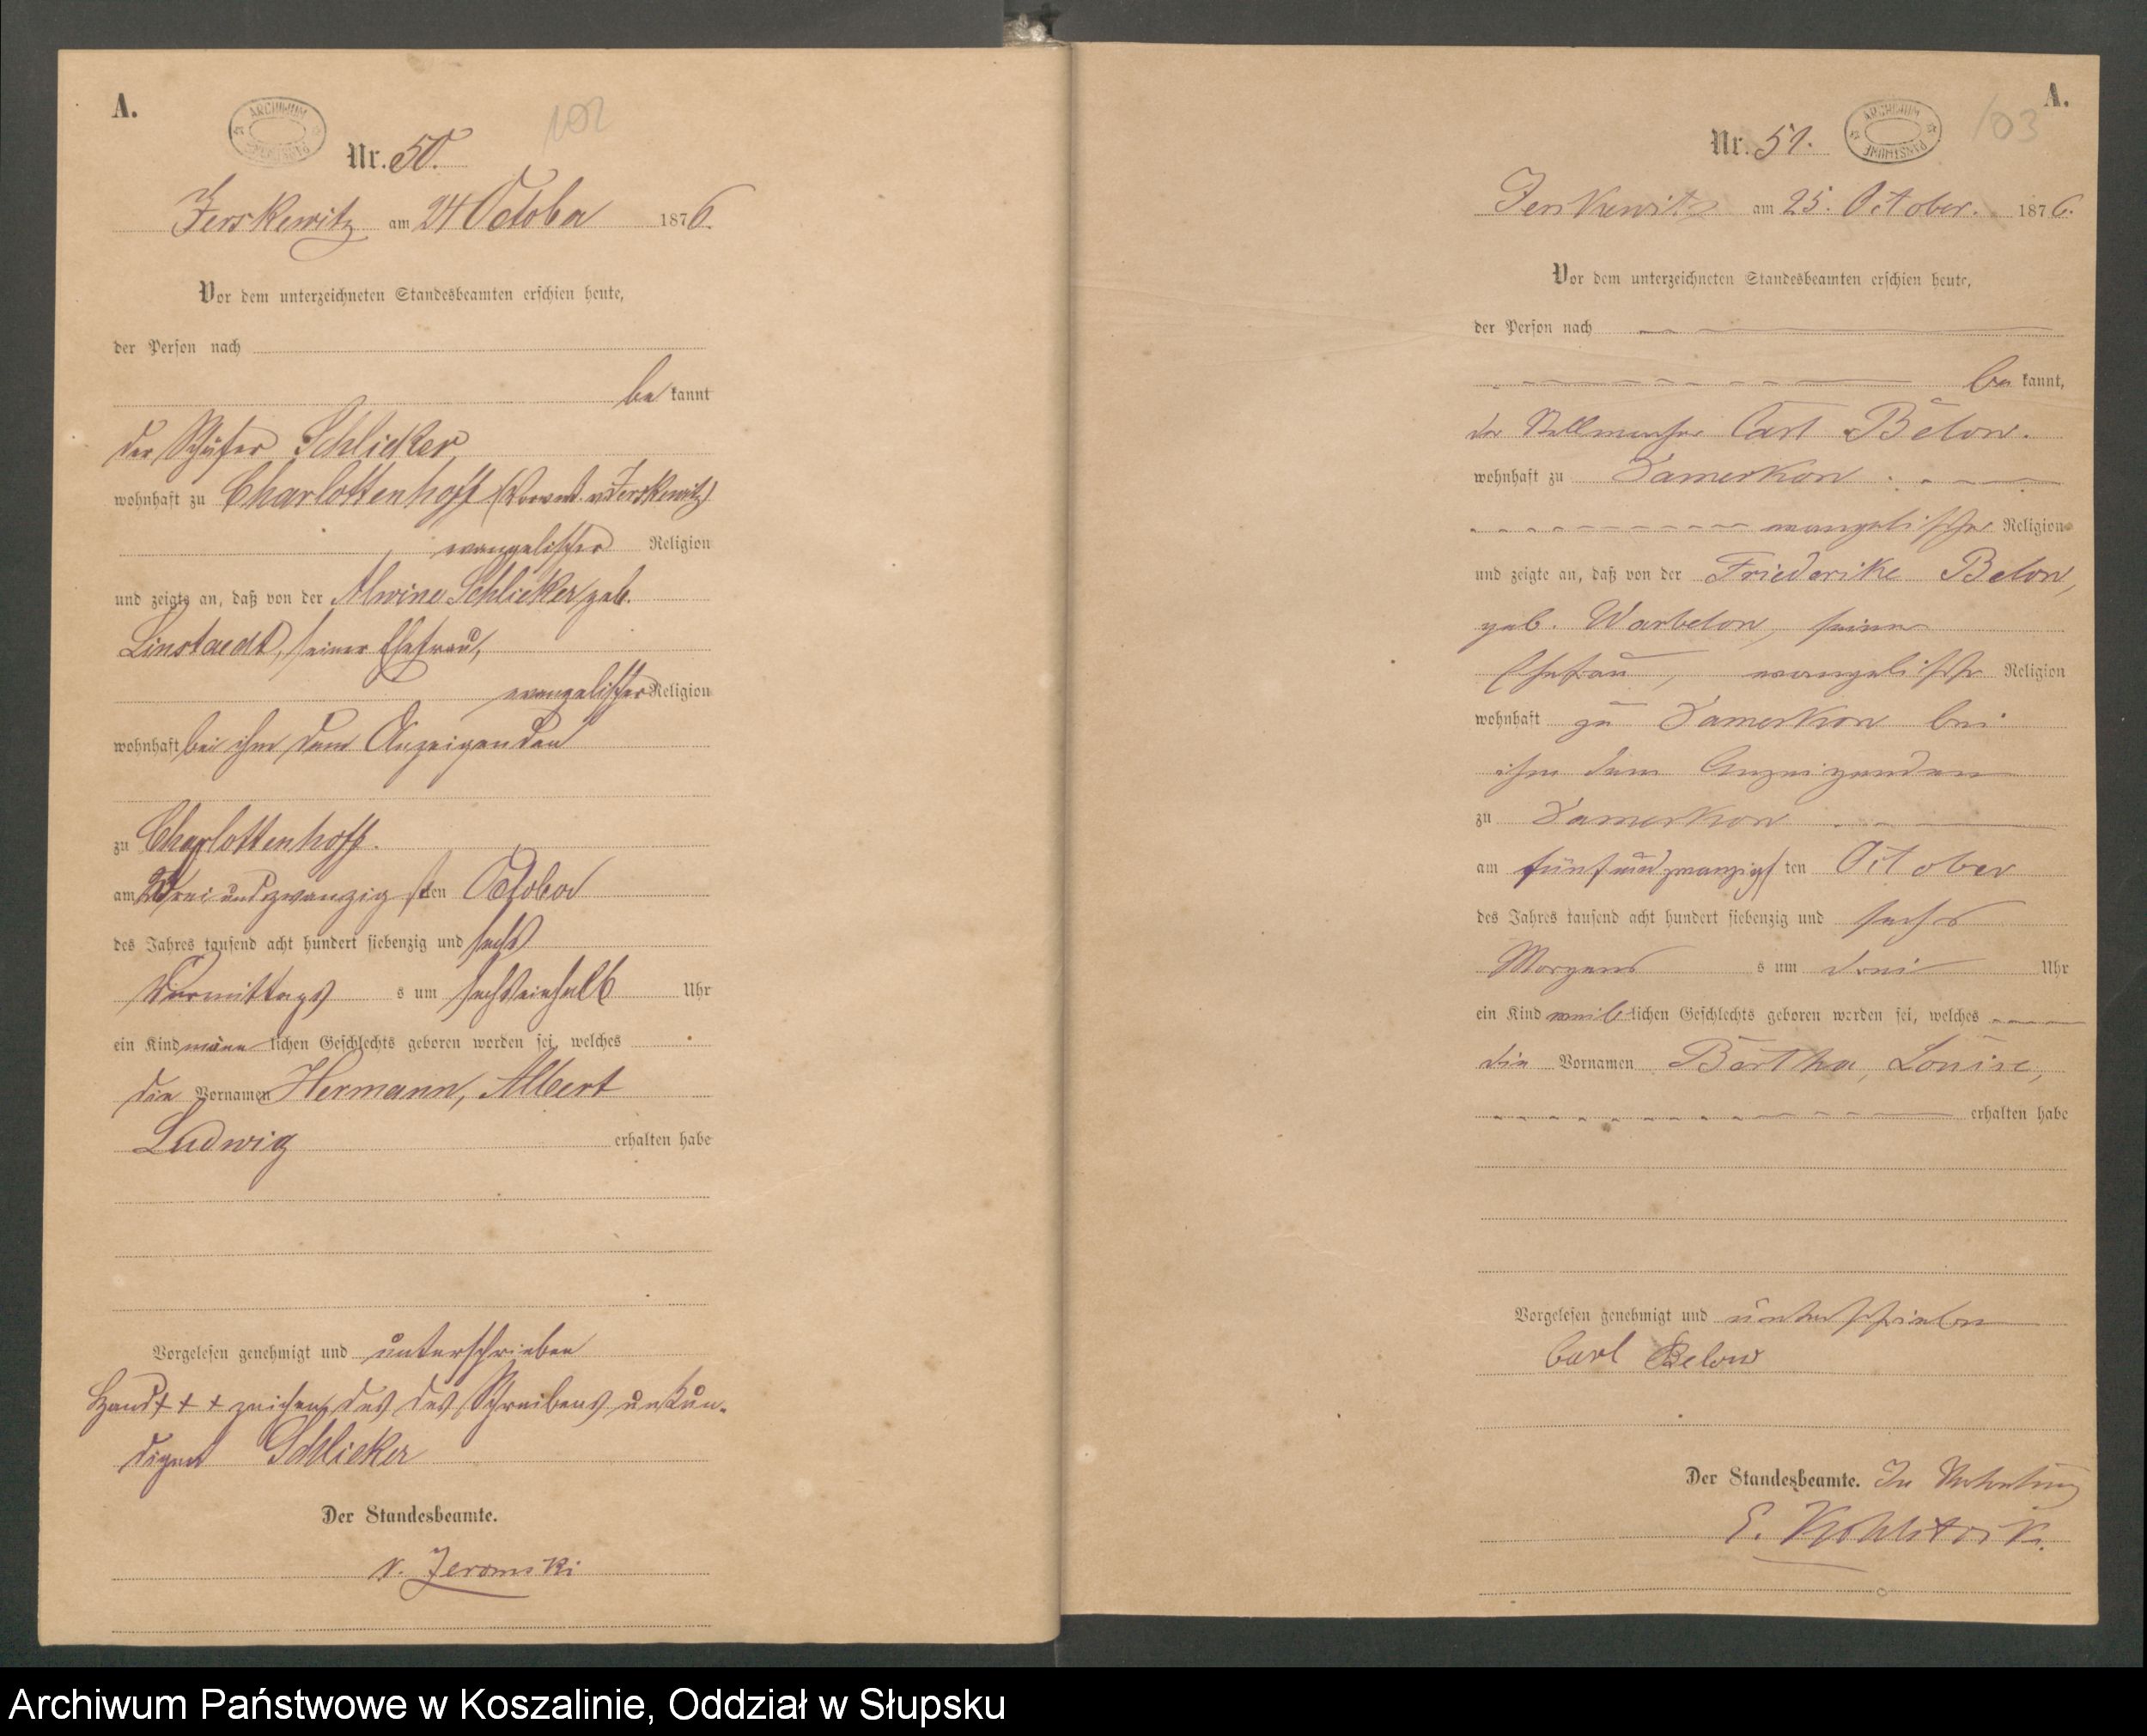 A.
ARCHIWUM
102
Nr. 50.
Jerskewitz am 24 October 1876.
Vor dem unterzeichneten Standesbeamten erschien heute,
der Person nach
be kannt
der Schäfer Schlicker,
wohnhaft zu Charlottenhoff (Vorwerk v. Jerskewitz)
evangelischer Religion
und zeigte an, daß von der Alwine Schlicker geb.
Linstaedt, seiner Ehefrau,
evangelischer Religion
wohnhaft bei ihm dem Anzeigenden
zu Charlottenhoff.
am Drei und zwanzigsten October
des Jahres tausend acht hundert siebenzig und sechs
Vormittags s um sechseinhalb Uhr
ein Kind männ lichen Geschlechts geboren worden sei, welches
die Vornamen Hermann, Albert
Ludwig erhalten habe
Vorgelesen genehmigt und unterschrieben
Hand + + + zeichen des des Schreibens unkun-
digen Schlicker
Der Standesbeamte.
v. Jeromski
A.
ARCHIWUM PAŃSTWOWE
103
Nr. 51.
Jerskewitz am 25. October. 1876.
Vor dem unterzeichneten Standesbeamten erschien heute,
der Person nach
be kannt,
der Stellmacher Carl Below.
wohnhaft zu Damerkow
evangelischer Religion
und zeigte an, daß von der Friederike Below,
geb. Warbelow, seiner
Ehefrau, evangelischer Religion
wohnhaft zu Damerkow bei
ihm dem Anzeigenden
zu Damerkow
am fünf und zwanzigsten October
des Jahres tausend acht hundert siebenzig und sechs
Morgens s um drei Uhr
ein Kind weib lichen Geschlechts geboren worden sei, welches
die Vornamen Bertha, Louise,
erhalten habe
Vorgelesen genehmigt und unterschrieben
Carl Below
Der Standesbeamte. In Vertretung
E.
Archiwum Państwowe w Koszalinie, Oddział w Słupsku